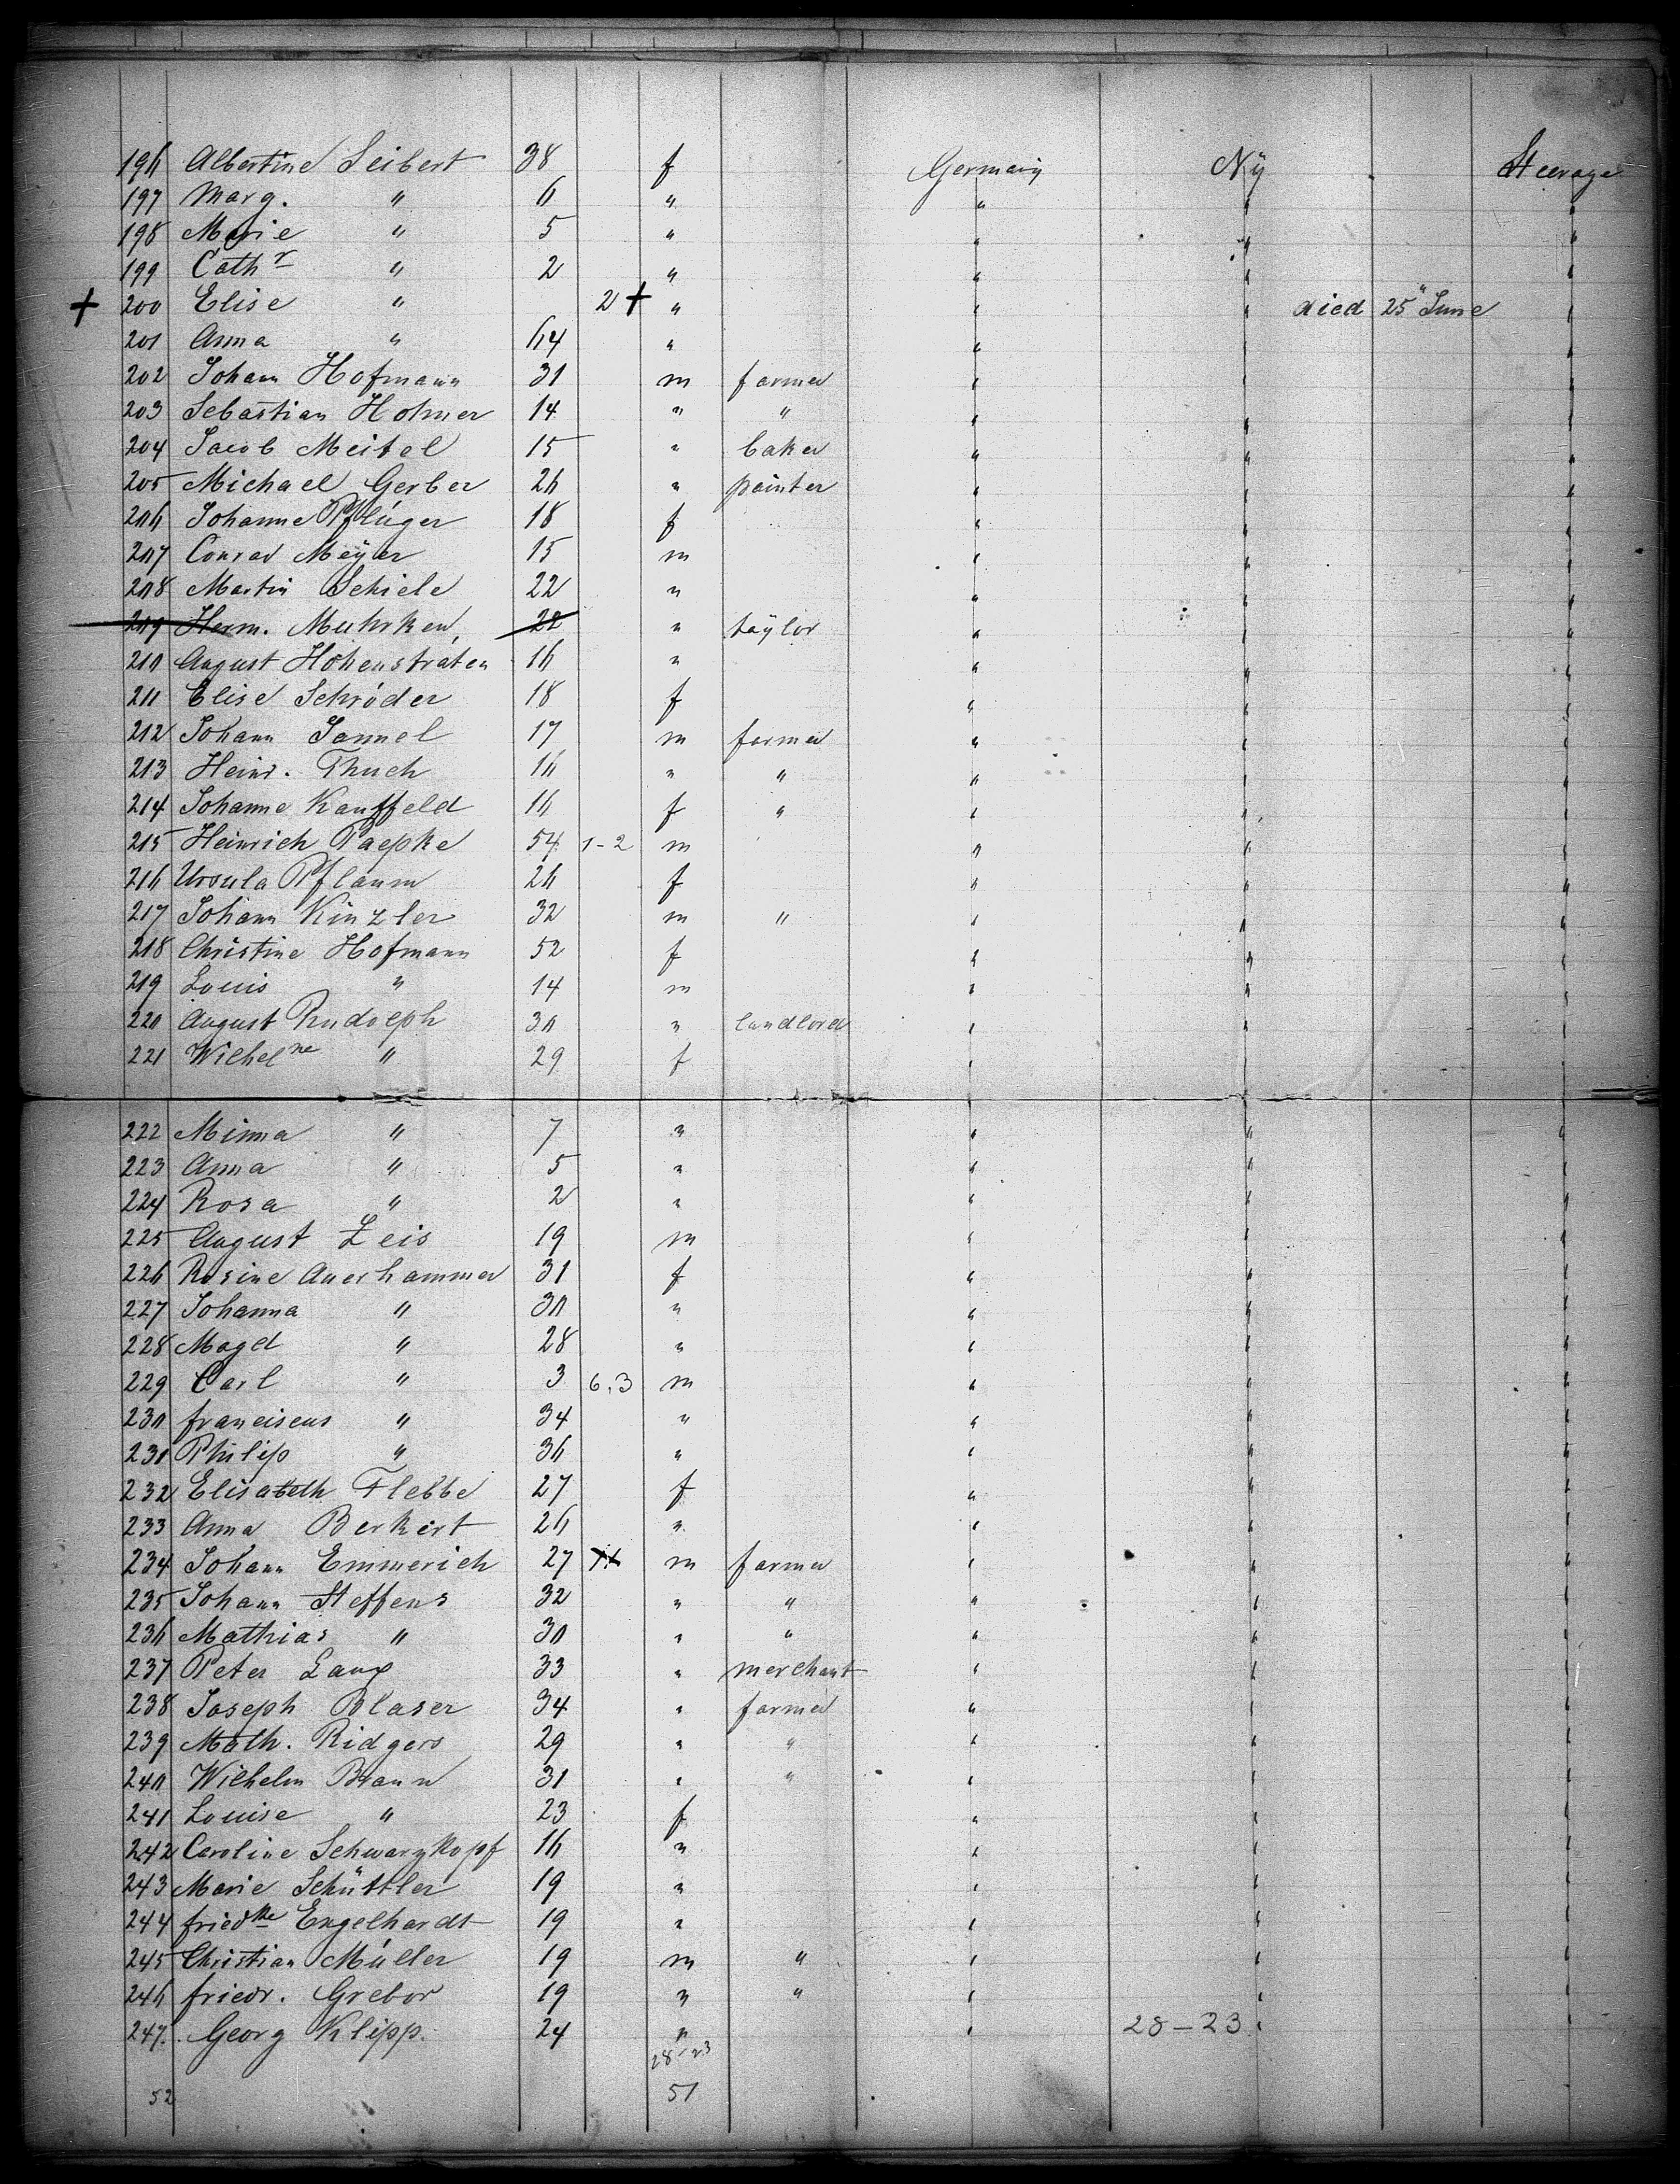 196 Albertine Seibert 38 f Germany Ny Steerage
197 Marg. " 6 " " " "
198 Marie " 5 " " " "
199 Cathr " 2 " " " "
+ 200 Elise " 2 + " " " died 25" June "
201 Anna " 64 " " " "
202 Johann Hofmann 31 m farmer " " "
203 Sebastian Holmer 14 " " " " "
204 Jacob Meitel 15 " baker " " "
205 Michael Gerber 26 " painter " " "
206 Johanne Pflúger 18 f " " "
207 Conrad Meÿer 15 m " " "
208 Martin Schiele 22 " " " "
209 Herm. Muhrken, 22 " taÿlor " " "
210 August Hohenstraten 16 " " " "
211 Elise Schróder 18 f " " "
212 Johann Sannel 17 m farmer " " "
213 Heinr. Thuch 16 " " " " "
214 Johanne Kauffeld 16 f " " " "
215 Heinrich Paepke 54 1-2 m " " "
216 Ursula Pflaum 26 f " " "
217 Johann Kinzler 32 m " " " "
218 Christine Hofmann 52 f " " "
219 Louis " 14 m " " "
220 August Rudolph 30 " landlord " " "
221 Wilhelne " 29 f " " "
222 Minna " 7 " " " "
223 Anna " 5 " " " "
224 Rosa " 2 " " " "
225 August Zeis 19 m " " "
226 Rosine Auerhammer 31 f " " "
227 Johanna " 30 " " " "
228 Magd " 28 " " " "
229 Carl " 3 6.3 m " " "
230 franciscus " 34 " " " "
231 Philip " 36 " " " "
232 Elisabeth Flebbe 27 f " " "
233 Anna Berkert 26 " " " "
234 Johann Emmerich 27 m farmer " " "
235 Johann Steffens 32 " " " " "
236 Mathias " 30 " " " " "
237 Peter Lang 33 " merchant " " "
238 Joseph Blaser 34 " farmer " " "
239 Math. Ridgers 29 " " " " "
240 Wilhelm Braun 31 " " " " "
241 Louise " 23 f " " "
242 Caroline Schwarzkopf 16 " " " "
243 Marie Schüttler 19 " " " "
244 friedke Engelhardt 19 " " " "
245 Christian Múller 19 m " " " "
246 friedr. Grebor 19 " " " " "
247. Georg Klipp. 24 " " 28-23 "
28-23
52 51